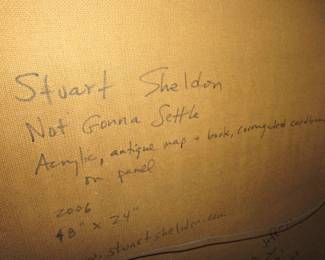 Stuart Sheldon
Not Gonna Settle
Acrylic, antique map + book, corrugated cardboard
on panel
2006
48" x 24"
www.stuartsheldon.com